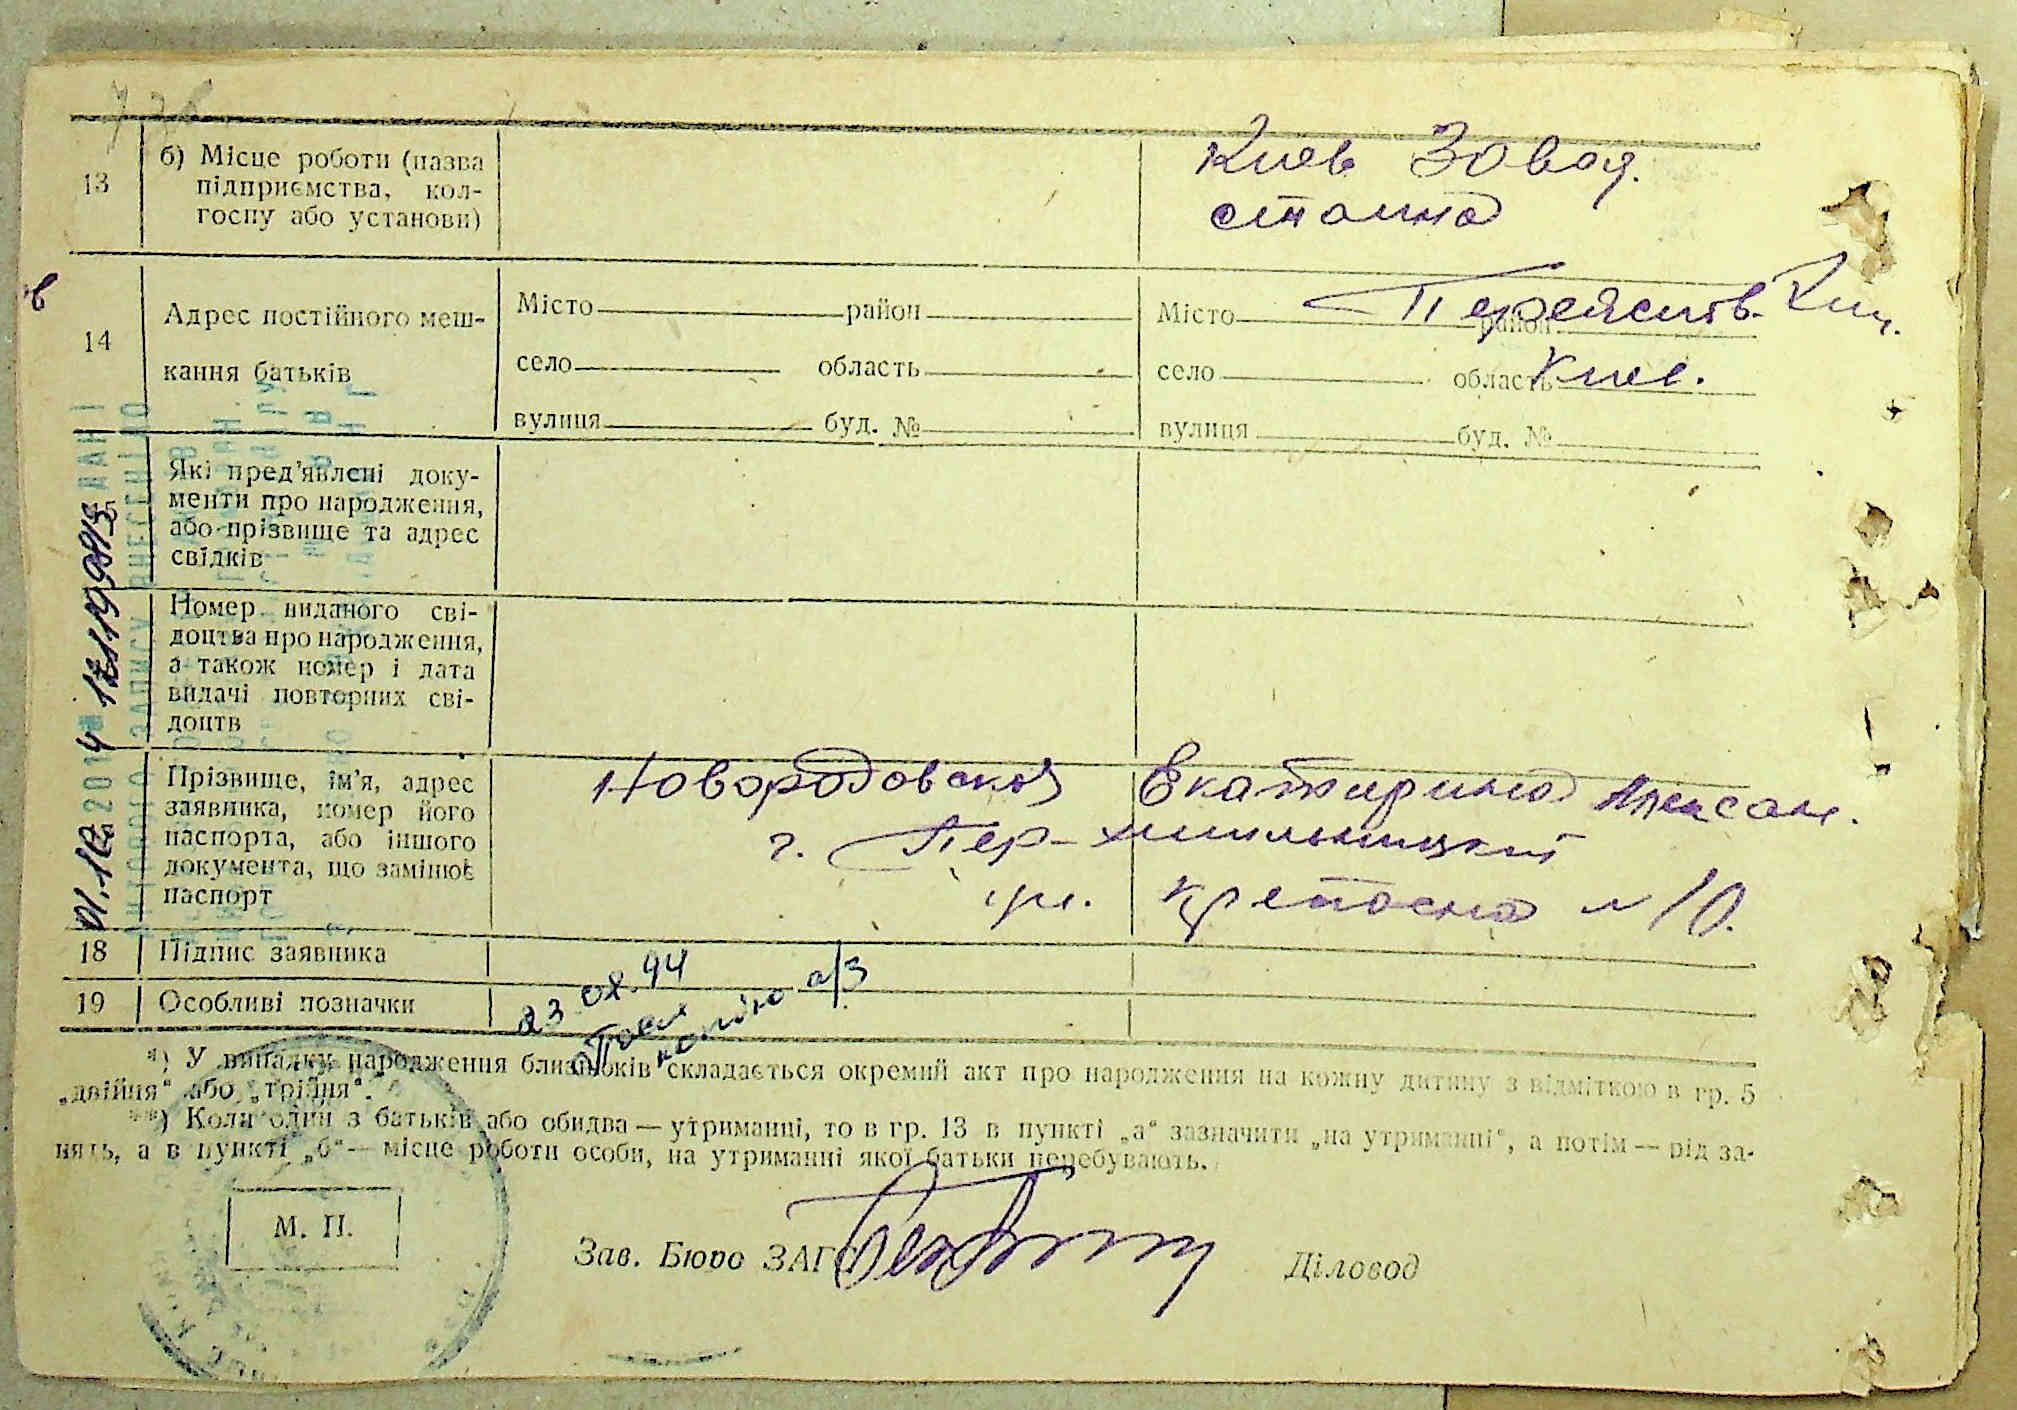 13
б) Місце роботи (назва
підприємства, кол-
госпу або установи)
Киев Завод.
сталина
14
Адрес постійного меш-
кання батьків
Місто район
село область
вулиця буд. №
Місто район
Переяслав. Хм.
село область Киев.
вулиця буд. №
Які пред'явлені доку-
менти про народження,
або прізвище та адрес
свідків
Номер виданого сві-
доцтва про народження,
а також номер і дата
видачі повторних сві-
доцтв
Прізвище, ім'я, адрес
заявника, номер його
паспорта, або іншого
документа, що замінює
паспорт
Новородовская Екатирина Алексан.
г. Пер-хмильницкий
ул. крепосна № 10.
18 Підпис заявника
19 Особливі позначки
23.08.94
копію а/з
*) У випадку народження близнюків складається окремий акт про народження на кожну дитину з відміткою в гр. 5
„двійня“ або „трійня“.
**) Коли один з батьків або обидва — утриманці, то в гр. 13 в пункті „а“ зазначити „на утриманні“, а потім — рід за-
нять, а в пункті „б“ — місце роботи особи, на утриманні якої батьки перебувають.
М. П.
Зав. Бюро ЗАГС
Діловод